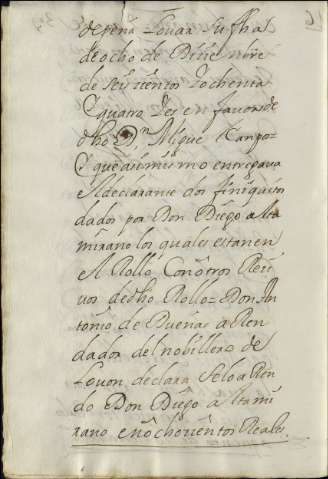 de peña Louar su fha l
de ocho de Disienvre
de seiscientos y ochenta
y quatro Y es en favor de
dho D.n Migue Campo=
Y que asimismo entregava
el declarante dos finiquitos
dados por Don Diego alta
mirano los quales estan en
el Rollo Con otros Reci
vos de dho Rollo= Don An
tonio de Dueñas aRen
dador del nobillero de
declara se lo aRen
do Don Diego altami
rano en ochocientos Reales